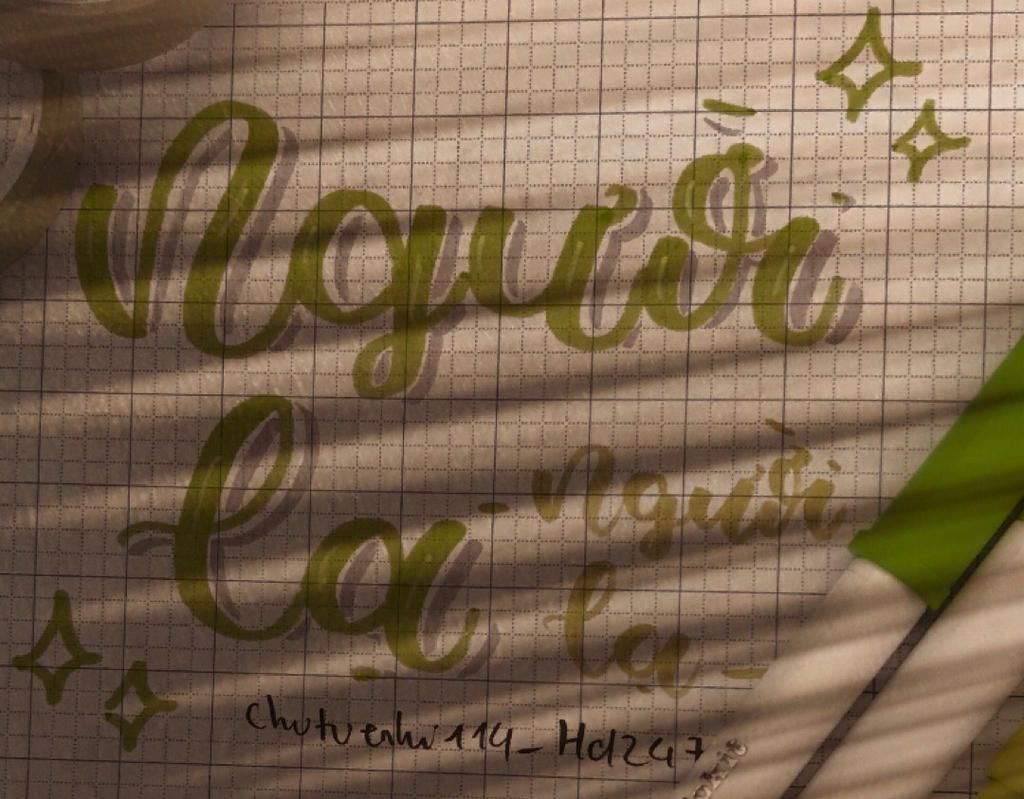 Người
lạ -
Người
lạ -
chutuenhi114_Hdz247